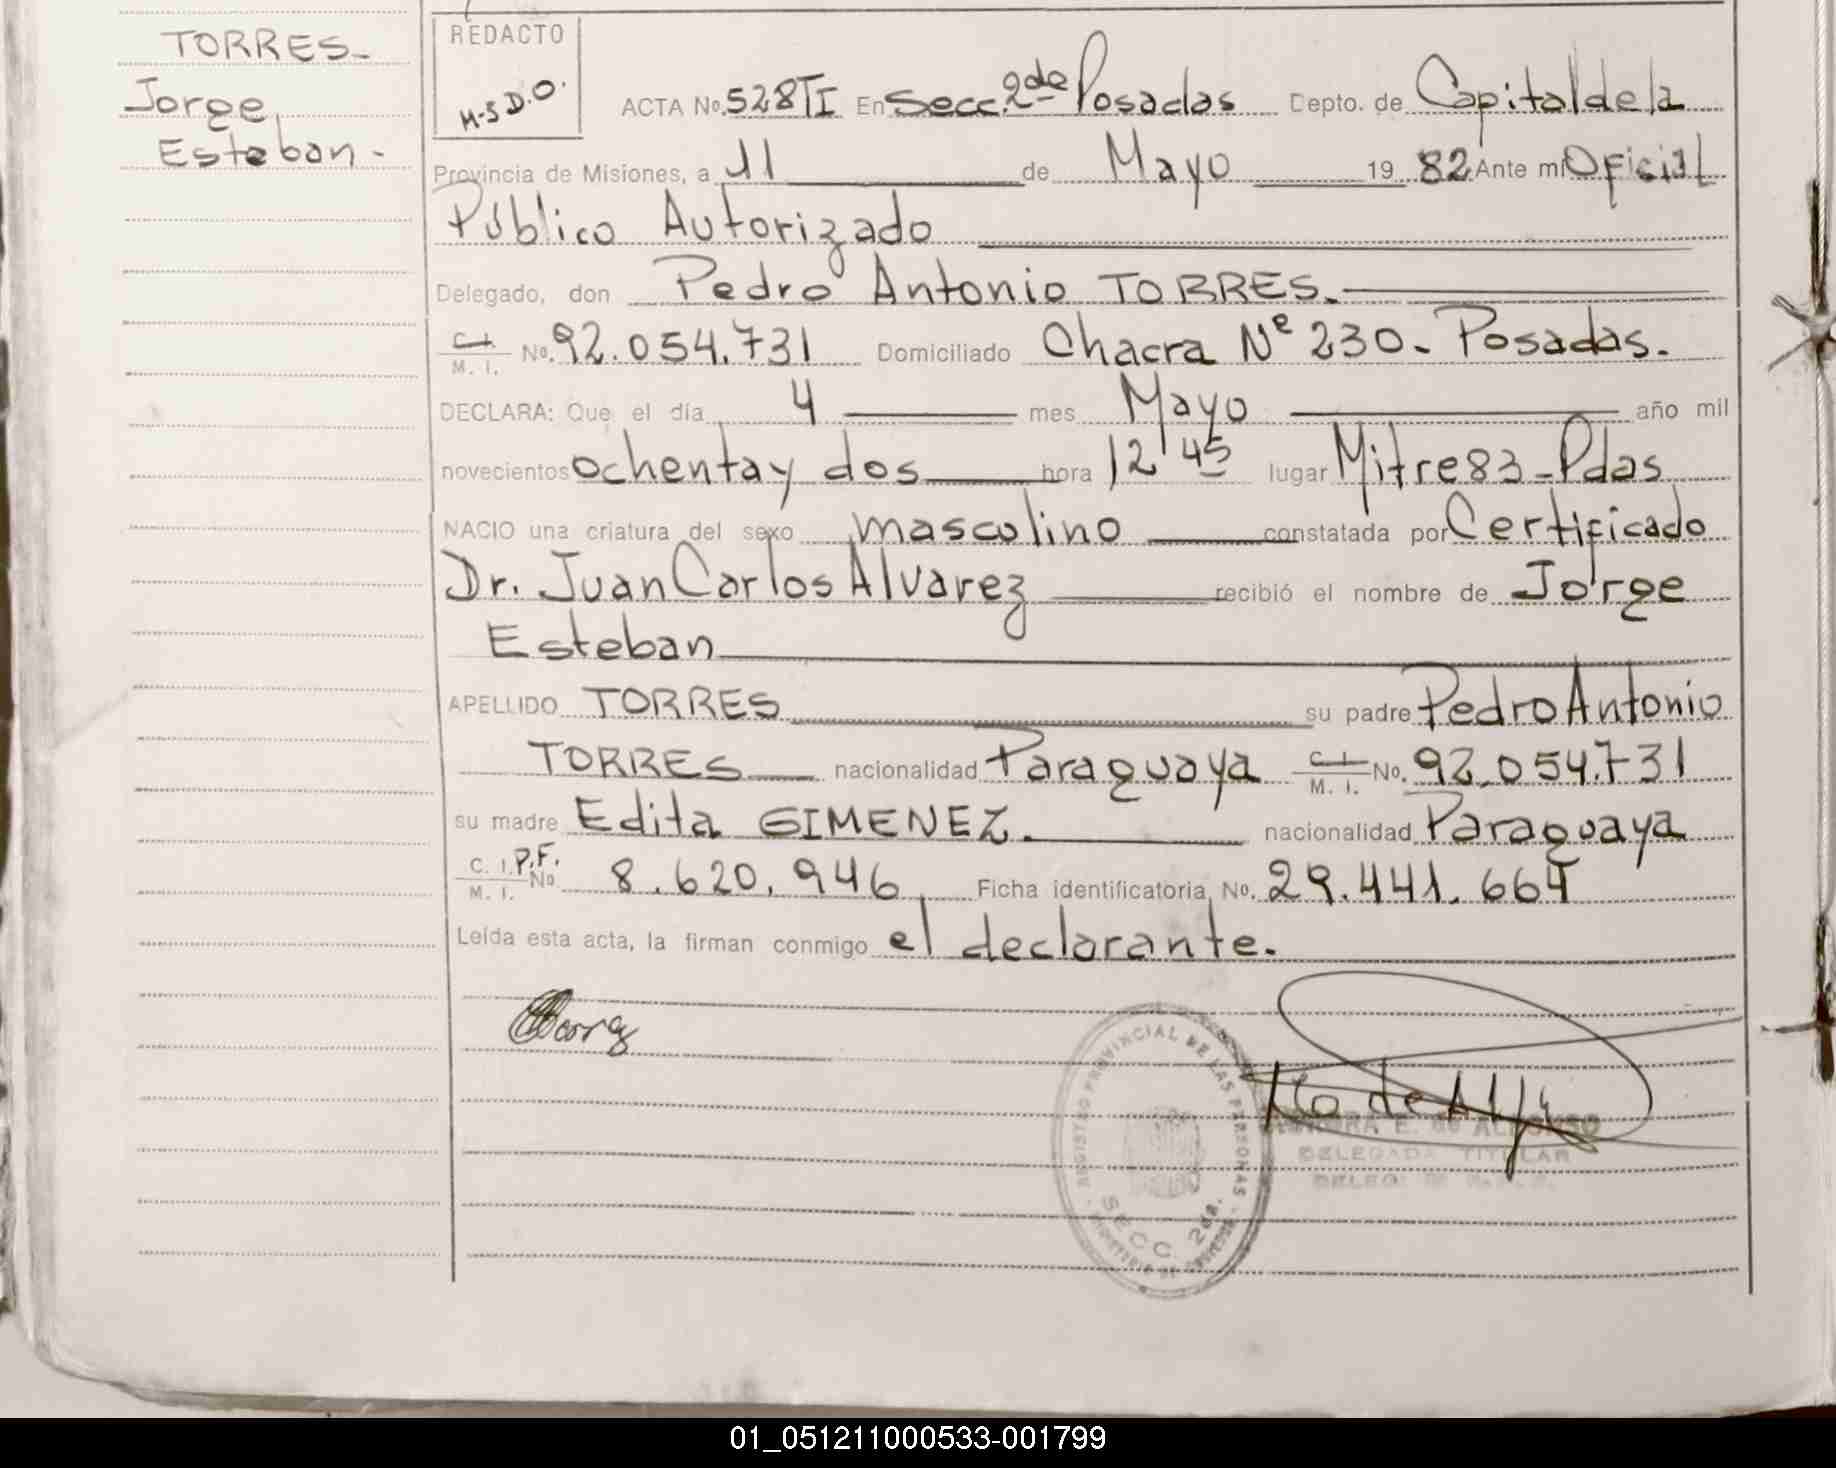 TORRES-
Jorge
Esteban-
REDACTO
M-S D.O.
ACTA No. 528 TI En Secc. 2da Posadas Depto. de Capital de la
Provincia de Misiones, a 11 de Mayo 19 82 Ante mi Oficial
Público Autorizado
Delegado, don Pedro Antonio TORRES.
C.I. M. I. No. 92.054.731 Domiciliado Chacra Nº 230- Posadas.
DECLARA: Que el día 4 mes Mayo año mil
novecientos ochenta y dos hora 12'45 lugar Mitre 83- Pdas
NACIO una criatura del sexo masculino constatada por Certificado
Dr. Juan Carlos Alvarez recibió el nombre de Jorge
Esteban
APELLIDO TORRES su padre Pedro Antonio
TORRES nacionalidad Paraguaya C.I. M. I. No. 92.054.731
su madre Edita GIMENEZ. nacionalidad Paraguaya
C. I. P.F. M. I. No 8.620.946 Ficha identificatoria No. 29.441.664
Leída esta acta, la firman conmigo el declarante.
REGISTRO PROVINCIAL DE LAS PERSONAS
SECC. 2da.
E. de ALFONSO
DELEGADA TITULAR
01_051211000533-001799